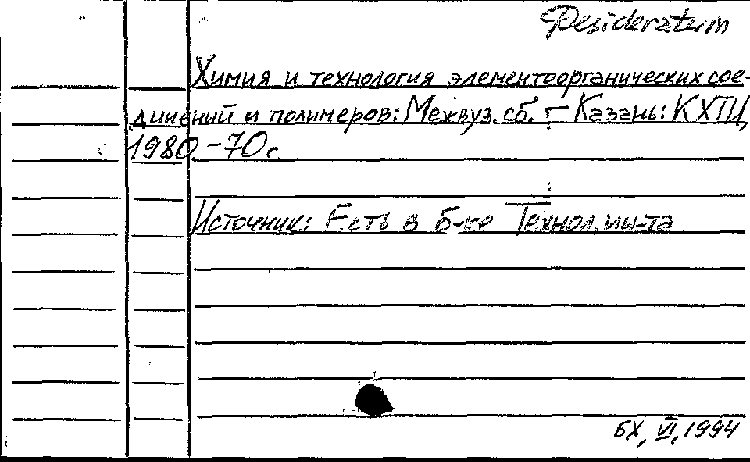 Desideratum
Химия и технология элементоорганических сое-
динений и полимеров: Межвуз. сб. – Казань: КХТИ,
1980. – 70 с.
Источник: Есть в б-ке Технол. ин-та
БХ, VI, 1994